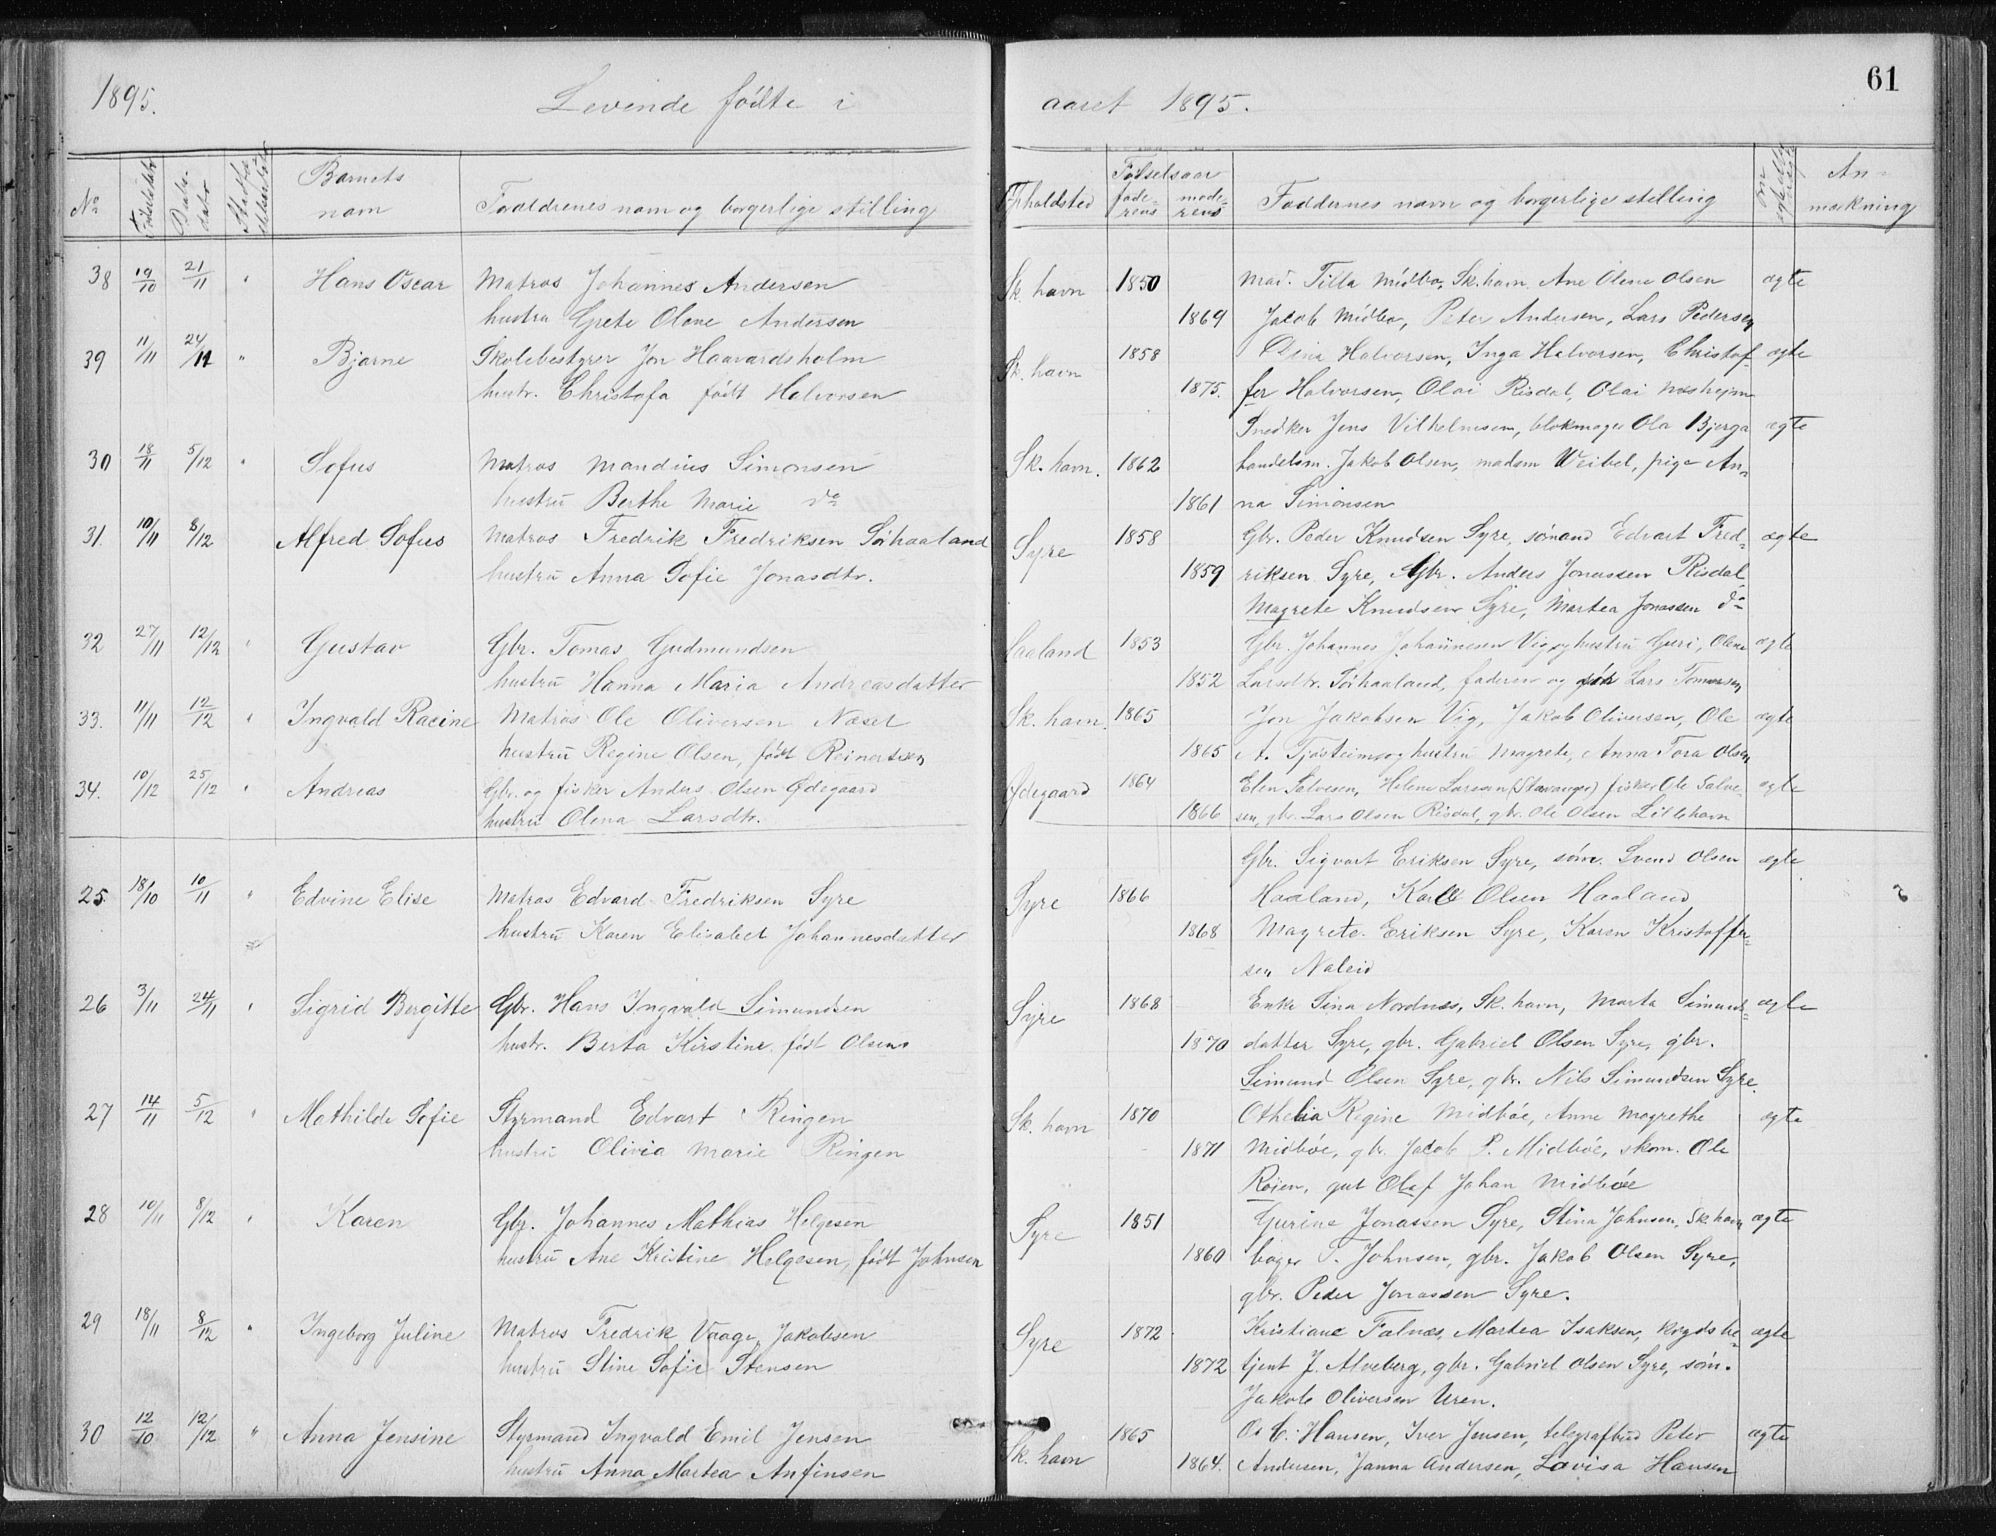 1895.
Levende fødte i
aaret 1895.
61
No
Fødselsdat
Daabsdato
Barnets navn
Forældrenes navn og borgerlige stilling
Opholdsted
Fødselsaar
faderens
moderens
Faddernes navn og borgerlige stilling
Om ægte eller uægte
Anmærkning
38 19/10 21/11 " Hans Oscar Matros Johannes Andersen Sk. havn 1850 Mad. Tilla Midbø, Sk.havn. Ane Olene Olsen ægte
hustru Grete Olene Andersen 1869 Jacob Midbø, Peter Andersen, Lars Pedersen
39 11/11 24/11 " Bjarne Skolebestyrer Jon Haavardsholm Sk. havn 1858 Dina Halvorsen, Inga Halvorsen, Christof- ægte
hustr. Christofa født Halvorsen 1875. fer Halvorsen, Olai Risdal, Olai
Snedker Jens Vilhelmsen, blokmager Ola Bjerga ægte
30 18/11 5/12 " Sofus Matros Mandius Simonsen Sk. havn. 1862 handelsm. Jakob Olsen, madam Weibel, pige An-
hustru Berthe Marie do 1861 na Simonsen
31. 10/11 8/12 Alfred Sofus Matros Fredrik Fredriksen Sørhaaland Syre 1858 Gbr. Peder Knudsen Syre, sømand Edvart Fred- ægte
hustru Anna Sofie Jonasdtr. 1859 riksen Syre, Gbr. Anders Jonassen Risdal
Magrete Knudsen Syre, Martea Jonassen do
32 27/11 12/12 " Gustav Gbr. Tomas Gudmundsen Haaland 1853 Gbr. Johannes Johannesen Vig og hustru Guri, Olene ægte
hustru Hanna Maria Andreasdatter 1852 Larsdtr. Sørhaaland, faderen og Lars Tomassen
33. 11/11 12/12 " Ingvald Racine Matros Ole Oliversen Næset Sk. havn. 1865 Jon Jakobsen Vig, Jakob Oliversen, Ole ægte
hustru Regine Olsen, født Reinertsen 1865 A. Tjøsteim og hustru Magrete, Anna Tora Olsen
34. 10/12 25/12 " Andreas Gbr. og fisker Anders Olsen Ødegaard Ødegaard 1864 Elen Salvesen, Helene Larsen (Stavanger) fisker Ole Salve- ægte
hustru Olena Larsdtr. 1866 sen, gbr. Lars Olsen Risdal, gbr. Ole Olsen Lillehavn
Gbr. Sigvart Eriksen Syre, søm. Svend Olsen ægte
25. 18/10 10/11 " Edvine Elise Matros Edvard Fredriksen Syre Syre 1866 Haaland, Karl Olsen Haaland
hustru Karen Elisabet Johannesdatter 1868 Magrete Eriksen Syre, Karen Kristoffer-
sen Naleid
26 3/11 24/11 " Sigrid Bergitte Gbr. Hans Ingvald Simundsen Syre 1868 Enke Sina Nordnæs, Sk. havn, Marta Simunds- ægte
hustr. Berta Kirstine, født Olsen 1870 datter Syre, gbr. Gabriel Olsen Syre, gbr.
Simund Olsen Syre, gbr. Nils Simundsen Syre.
27 14/11 5/12 " Mathilde Sofie Styrmand Edvart Ringen Sk. havn 1870 Othelia Regine Midbøe, Anne Magrethe ægte
hustru Olivia Marie Ringen 1871 Midbøe, gbr. Jacob P. Midbøe, skom. Ole
Røien, gut Olaf Johan Midbøe
28 10/11 8/12 " Karen Gbr. Johannes Mathias Helgesen Syre 1851 Gurine Jonassen Syre, Stina Johnsen, Sk.havn ægte
hustru Ane Kristine Helgesen, født Johnsen 1860 bager T. Johnsen, gbr. Jakob Olsen Syre,
gbr. Peder Jonassen Syre.
29 18/11 8/12 " Ingeborg Juline Matros Fredrik Vaage Jakobsen Syre 1872 Kristiane Falnæs, Martea Isaksen, krydsbe- ægte
hustru Stine Sofie Stensen 1872 tjent J. Alveberg, gbr. Gabriel Olsen Syre, søm.
Jakob Oliversen Uren.
30 12/10 12/12 " Anna Jensine Styrmand Ingvald Emil Jensen Sk. havn 1865 O. C. Hansen, Iver Jensen, telegrafbud Peter ægte
hustru Anna Martea Anfinsen 1864. Andersen, Janna Andersen, Lovisa Hansen